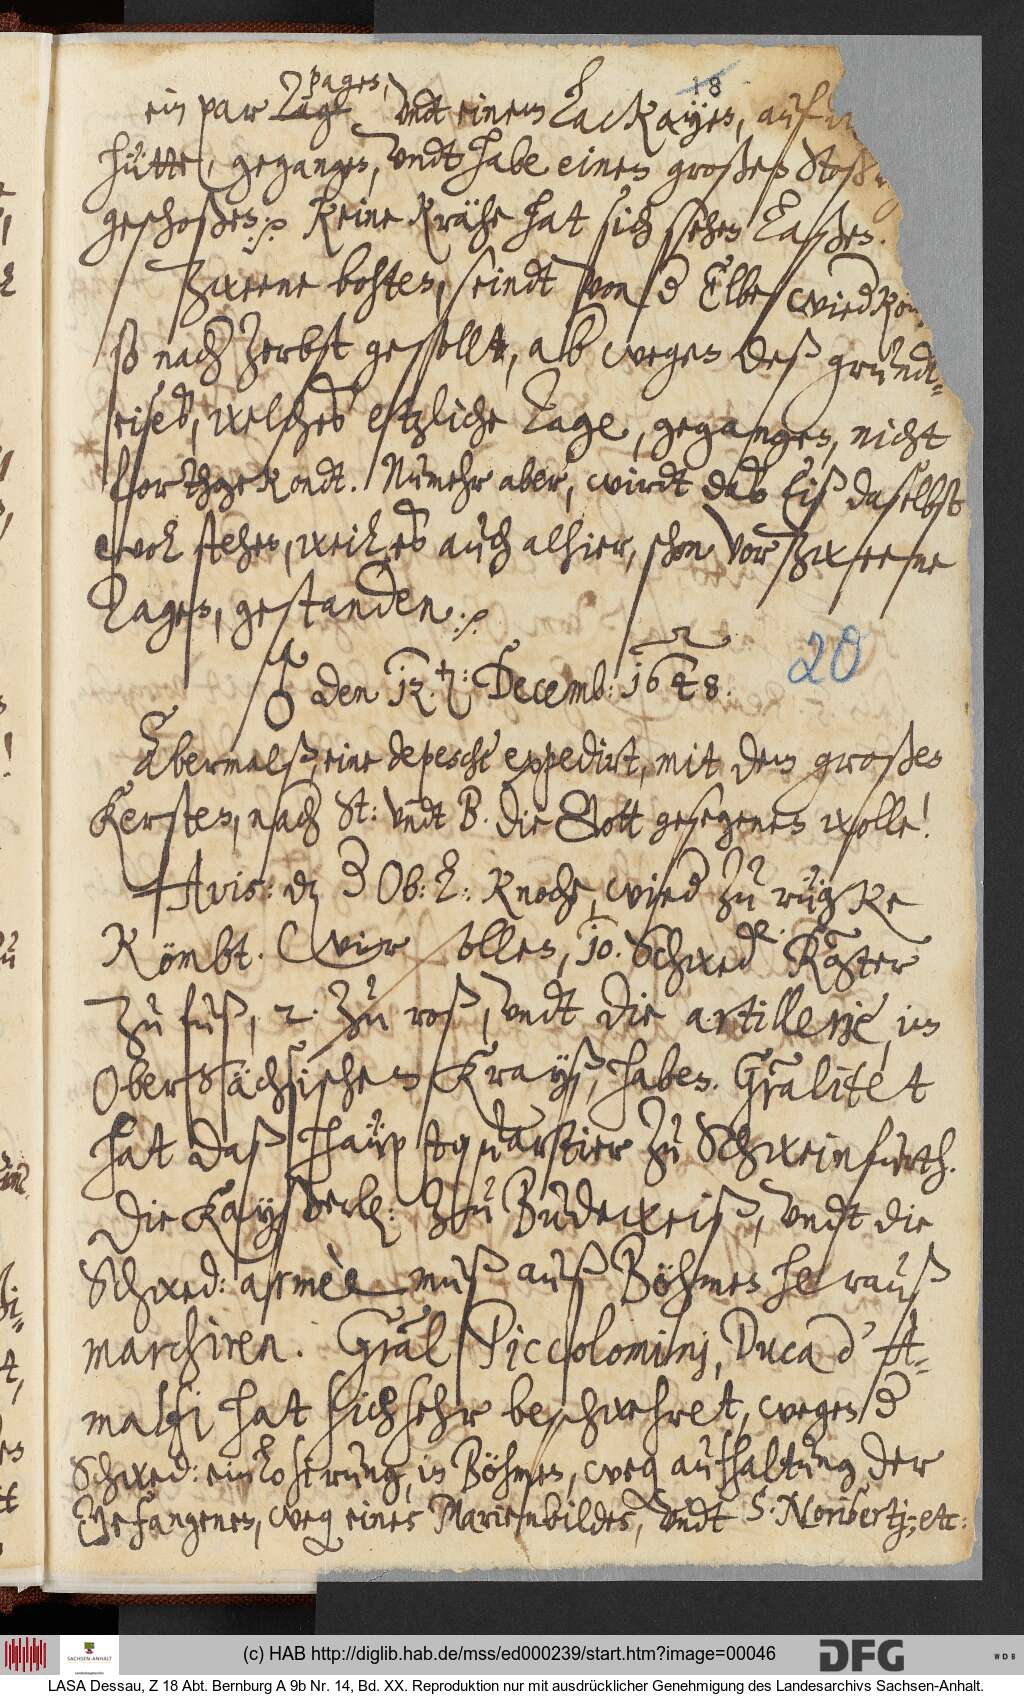 18
pages,
ein par Tage Vndt einem Lackayen, auf
hütte, gegangen, Vndt habe einen großen Stoß
geschoßen :/: Keine Krähe hat sich sehen Laßen.
Zweene bohten, seindt von d Elbe wied
so nach Zerbst gesollt, alß wegen deß grundt=
eises, welches etzliche Tage, gegangen, nicht
forthgekondt. Nunmehr aber, wirdt das Eiß daselbst
wol stehen, weil es auch alhier, schon vor zweene
Tagen, gestanden :/:
20
♁ den 12.t: Decemb: 1648.
Abermalß, eine depesche expedirt, mit dem großen
Kersten, nach St: Vndt B. die Gott gesegenen wolle!
Avis: dz d Ob: L: Knoche, wied zu rügke
Kömbt. Wir sollen, 10. Schwed. R
Zu fuß, 2. Zu roß, Vndt die artillerie, im
Ober Sächsischen Krayß, haben. Gralitet
hat daß Häuptquartier zu Schweinfurth.
Die Kayserl: Zu Budeweiß, Vndt die
Schwed: armèe muß auß Böhmen herauß
marchiren. Gräl Piccolominj, Duca d' A=
malfi hat sich sehr beschwehret, wegen d
Schwed: einlosirung, in Böhmen, weg aufhaltung der
Gefangenen, weg eines Marienbildes, Vndt S. Noribertj, etc:
(c) HAB http://diglib.hab.de/mss/ed000239/start.htm?image=00046
SACHSEN-ANHALT
DFG
WDB
LASA Dessau, Z 18 Abt. Bernburg A 9b Nr. 14, Bd. XX. Reproduktion nur mit ausdrücklicher Genehmigung des Landesarchivs Sachsen-Anhalt.